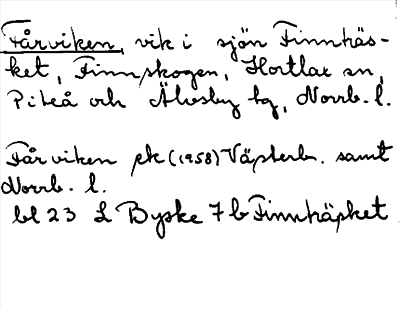 Fårviken, vik i sjön Finnträs-
ket, Finnskogen, Hortlax sn,
Piteå och Älvsby tg, Norrb. l.
Fårviken ek (1958) Västerb. samt
Norrb. l.
bl 23 L Byske 7 b Finnträsket